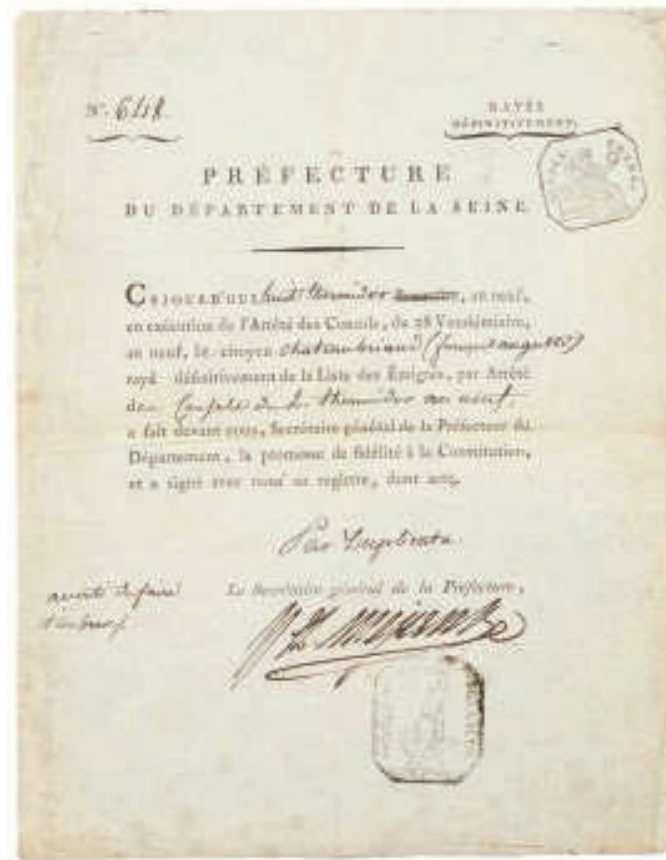 N.° 648.
RAYÉS
DÉFINITIVEMENT.
PRÉFECTURE
DU DÉPARTEMENT DE LA SEINE.
CEJOURD'HUI huit thermidor, an neuf,
en exécution de l'Arrêté des Consuls, du 28 Vendémiaire,
an neuf, le citoyen chateaubriand (françois auguste)
rayé définitivement de la Liste des Émigrés, par Arrêté
des Consuls du 2 thermidor an neuf,
a fait devant nous, Secrétaire général de la Préfecture du
Département, la promesse de fidélité à la Constitution,
et a signé avec nous au registre, dont acte.
Par Duplicata
Le Secrétaire général de la Préfecture,
avant de faire